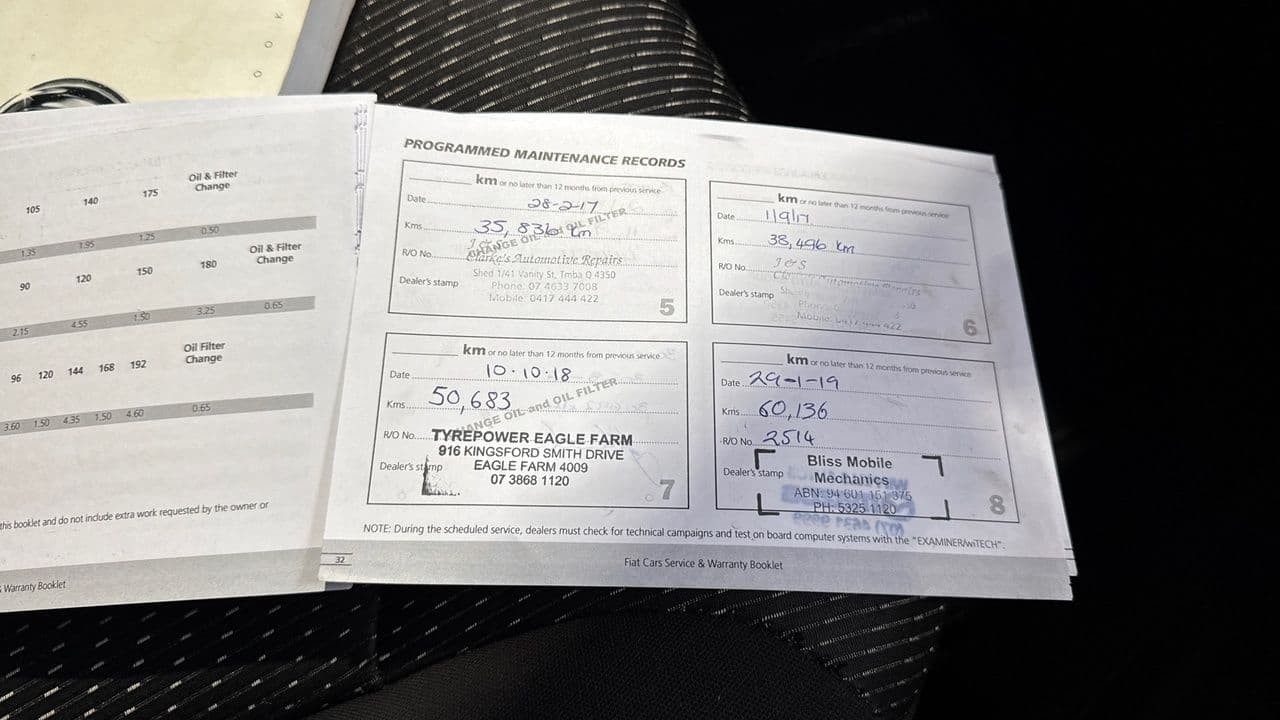 105 140 175 Oil & Filter
Change
1.35 1.95 1.25 0.50
90 120 150 180 Oil & Filter
Change
2.15 4.55 1.50 3.25 0.65
96 120 144 168 192 Oil Filter
Change
3.60 1.50 4.35 1.50 4.60 0.65
this booklet and do not include extra work requested by the owner or
Warranty Booklet
PROGRAMMED MAINTENANCE RECORDS
km or no later than 12 months from previous service
Date 28-2-17
Kms 35,836 km
CHANGE OIL and OIL FILTER
R/O No. Clarke's Automotive Repairs
Shed 1/41 Vanity St, Tmba Q 4350
Dealer's stamp Phone: 07 4633 7008
Mobile: 0417 444 422
5
km or no later than 12 months from previous service
Date 11/9/17
Kms 38,496 km
R/O No. J & S
Dealer's stamp
Mobile: 0417 444 422
6
km or no later than 12 months from previous service
Date 10.10.18
Kms 50,683
CHANGE OIL and OIL FILTER
R/O No. TYREPOWER EAGLE FARM
916 KINGSFORD SMITH DRIVE
Dealer's stamp EAGLE FARM 4009
07 3868 1120
7
km or no later than 12 months from previous service
Date 29-1-19
Kms 60,136
R/O No. 2514
Dealer's stamp Bliss Mobile
Mechanics
ABN: 94 601 151 375
PH: 5325 1120
8
NOTE: During the scheduled service, dealers must check for technical campaigns and test on board computer systems with the "EXAMINER/wiTECH".
32
Fiat Cars Service & Warranty Booklet